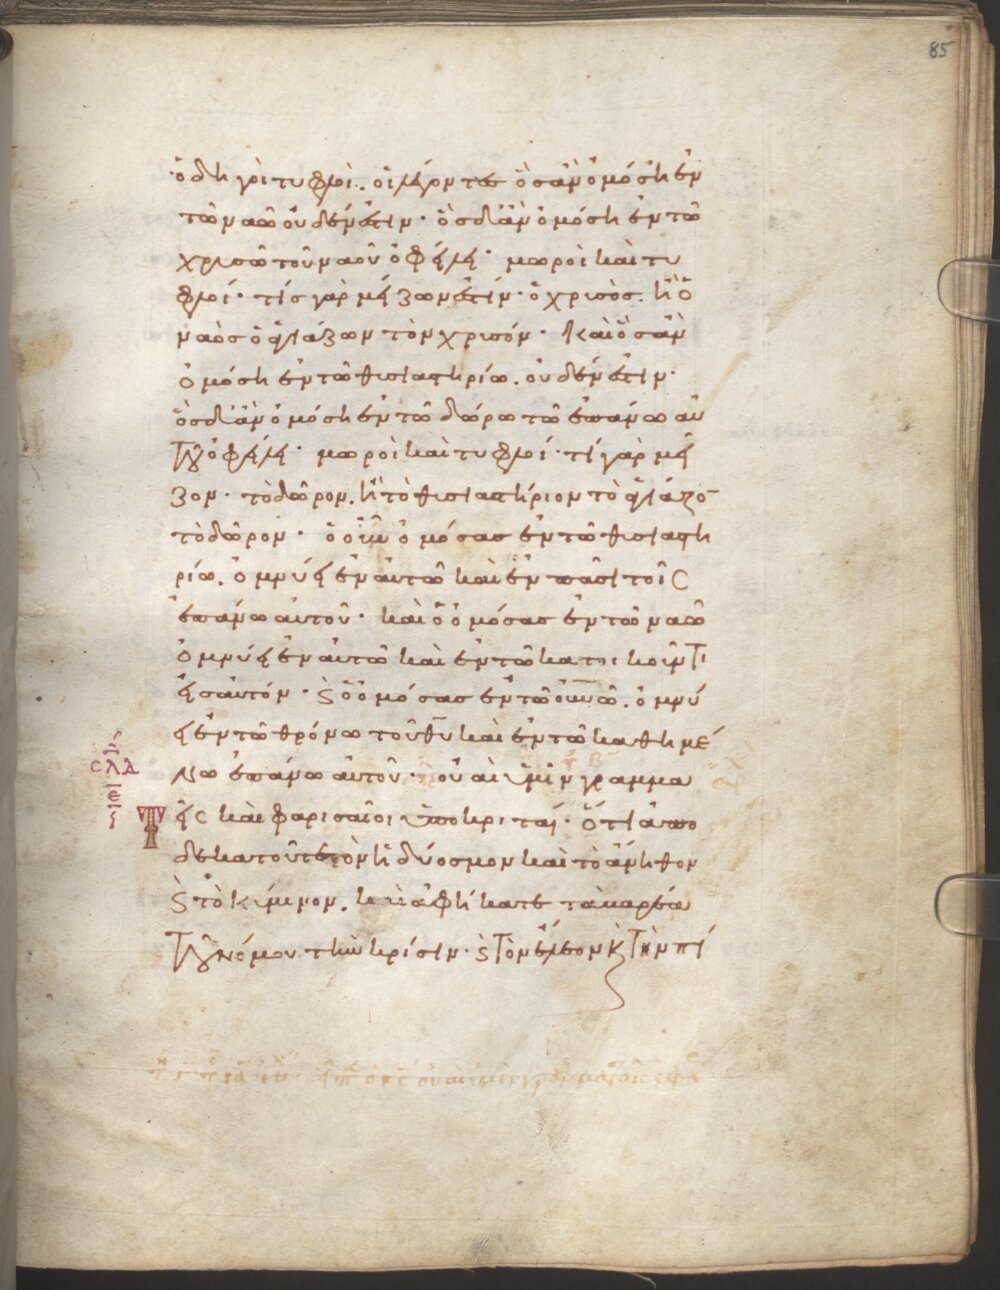 85
ὁδηγοὶ τυφλοὶ. οἱ λέγοντες ὃς ἂν ὀμόση ἐν
τῶ ναῶ οὐδέν ἐστιν· ὃς δ' ἂν ὀμόση ἐν τῶ
χρισῶ τοῦ ναοῦ ὀφείλει· μωροὶ καὶ τυ
φλοί· τίς γὰρ μείζων ἐστίν· ὁ χρισὸς. ἢ ὁ
ναὸς ὁ ἁγιάζων τὸν χρισόν· καὶ ὃς ἂν
ὀμόση ἐν τῶ θισιαστηρίω. οὐδέν ἐστιν·
ὃς δ' ἂν ὀμόση ἐν τῶ δώρω τῶ ἐπάνω αὐ
τοῦ ὀφείλει· μωροὶ καὶ τυφλοί· τί γὰρ μεῖ
ζον· τὸ δῶρον. ἢ τὸ θισιαστήριον τὸ ἁγιάζο̅
τὸ δῶρον· ὁ οὖν ὀμόσας ἐν τῶ θισιαστη
ρίω. ὀμνύει ἐν αὐτῶ καὶ ἐν πᾶσι τοῖς
ἐπάνω αὐτοῦ· καὶ ὁ ὀμόσας ἐν τῶ ναῶ
ὀμνύει ἐν αὐτῶ καὶ ἐν τῶ κατοικοῖντι
εἰς αὐτόν· ϗ ὁ ὀμόσας ἐν τῶ οὐ̅ν̅ῶ. ὀμνύ
ει ἐν τῶ θρόνω τοῦ θ̅υ̅ καὶ ἐν τῶ καθημέ
σλδ
ε̅
νω ἐπάνω αὐτοῦ· οὐαὶ ὑμῖν γραμμα
τεῖς καὶ φαρισαῖοι ὑποκριταί· ὅτι ἀπο
δεκατοῦτε τὸν ἡδύοσμον καὶ τὸ ἄνηθον
ϗ τὸ κίμινον. καὶ ἀφήκατε τὰ βαρέα
τοῦ νόμου τὴν κρίσιν· ϗ τὸν ἔλεον ϗ τὴν πί